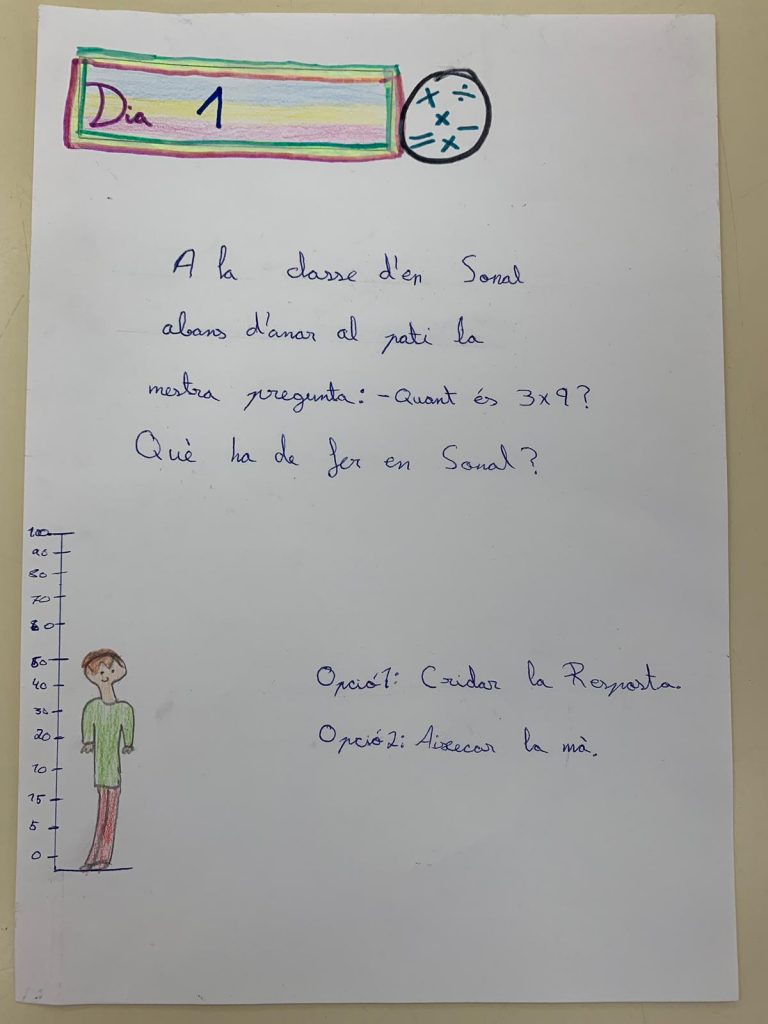 Dia 1
x ÷
x
= x -
A la classe d'en Sonal
abans d'anar al pati la
mestra pregunta: - Quant és 3x9?
Què ha de fer en Sonal?
100
90
80
70
60
50
40
30
20
10
15
5
0
Opció1: Cridar la Resposta.
Opció2: Aixecar la mà.